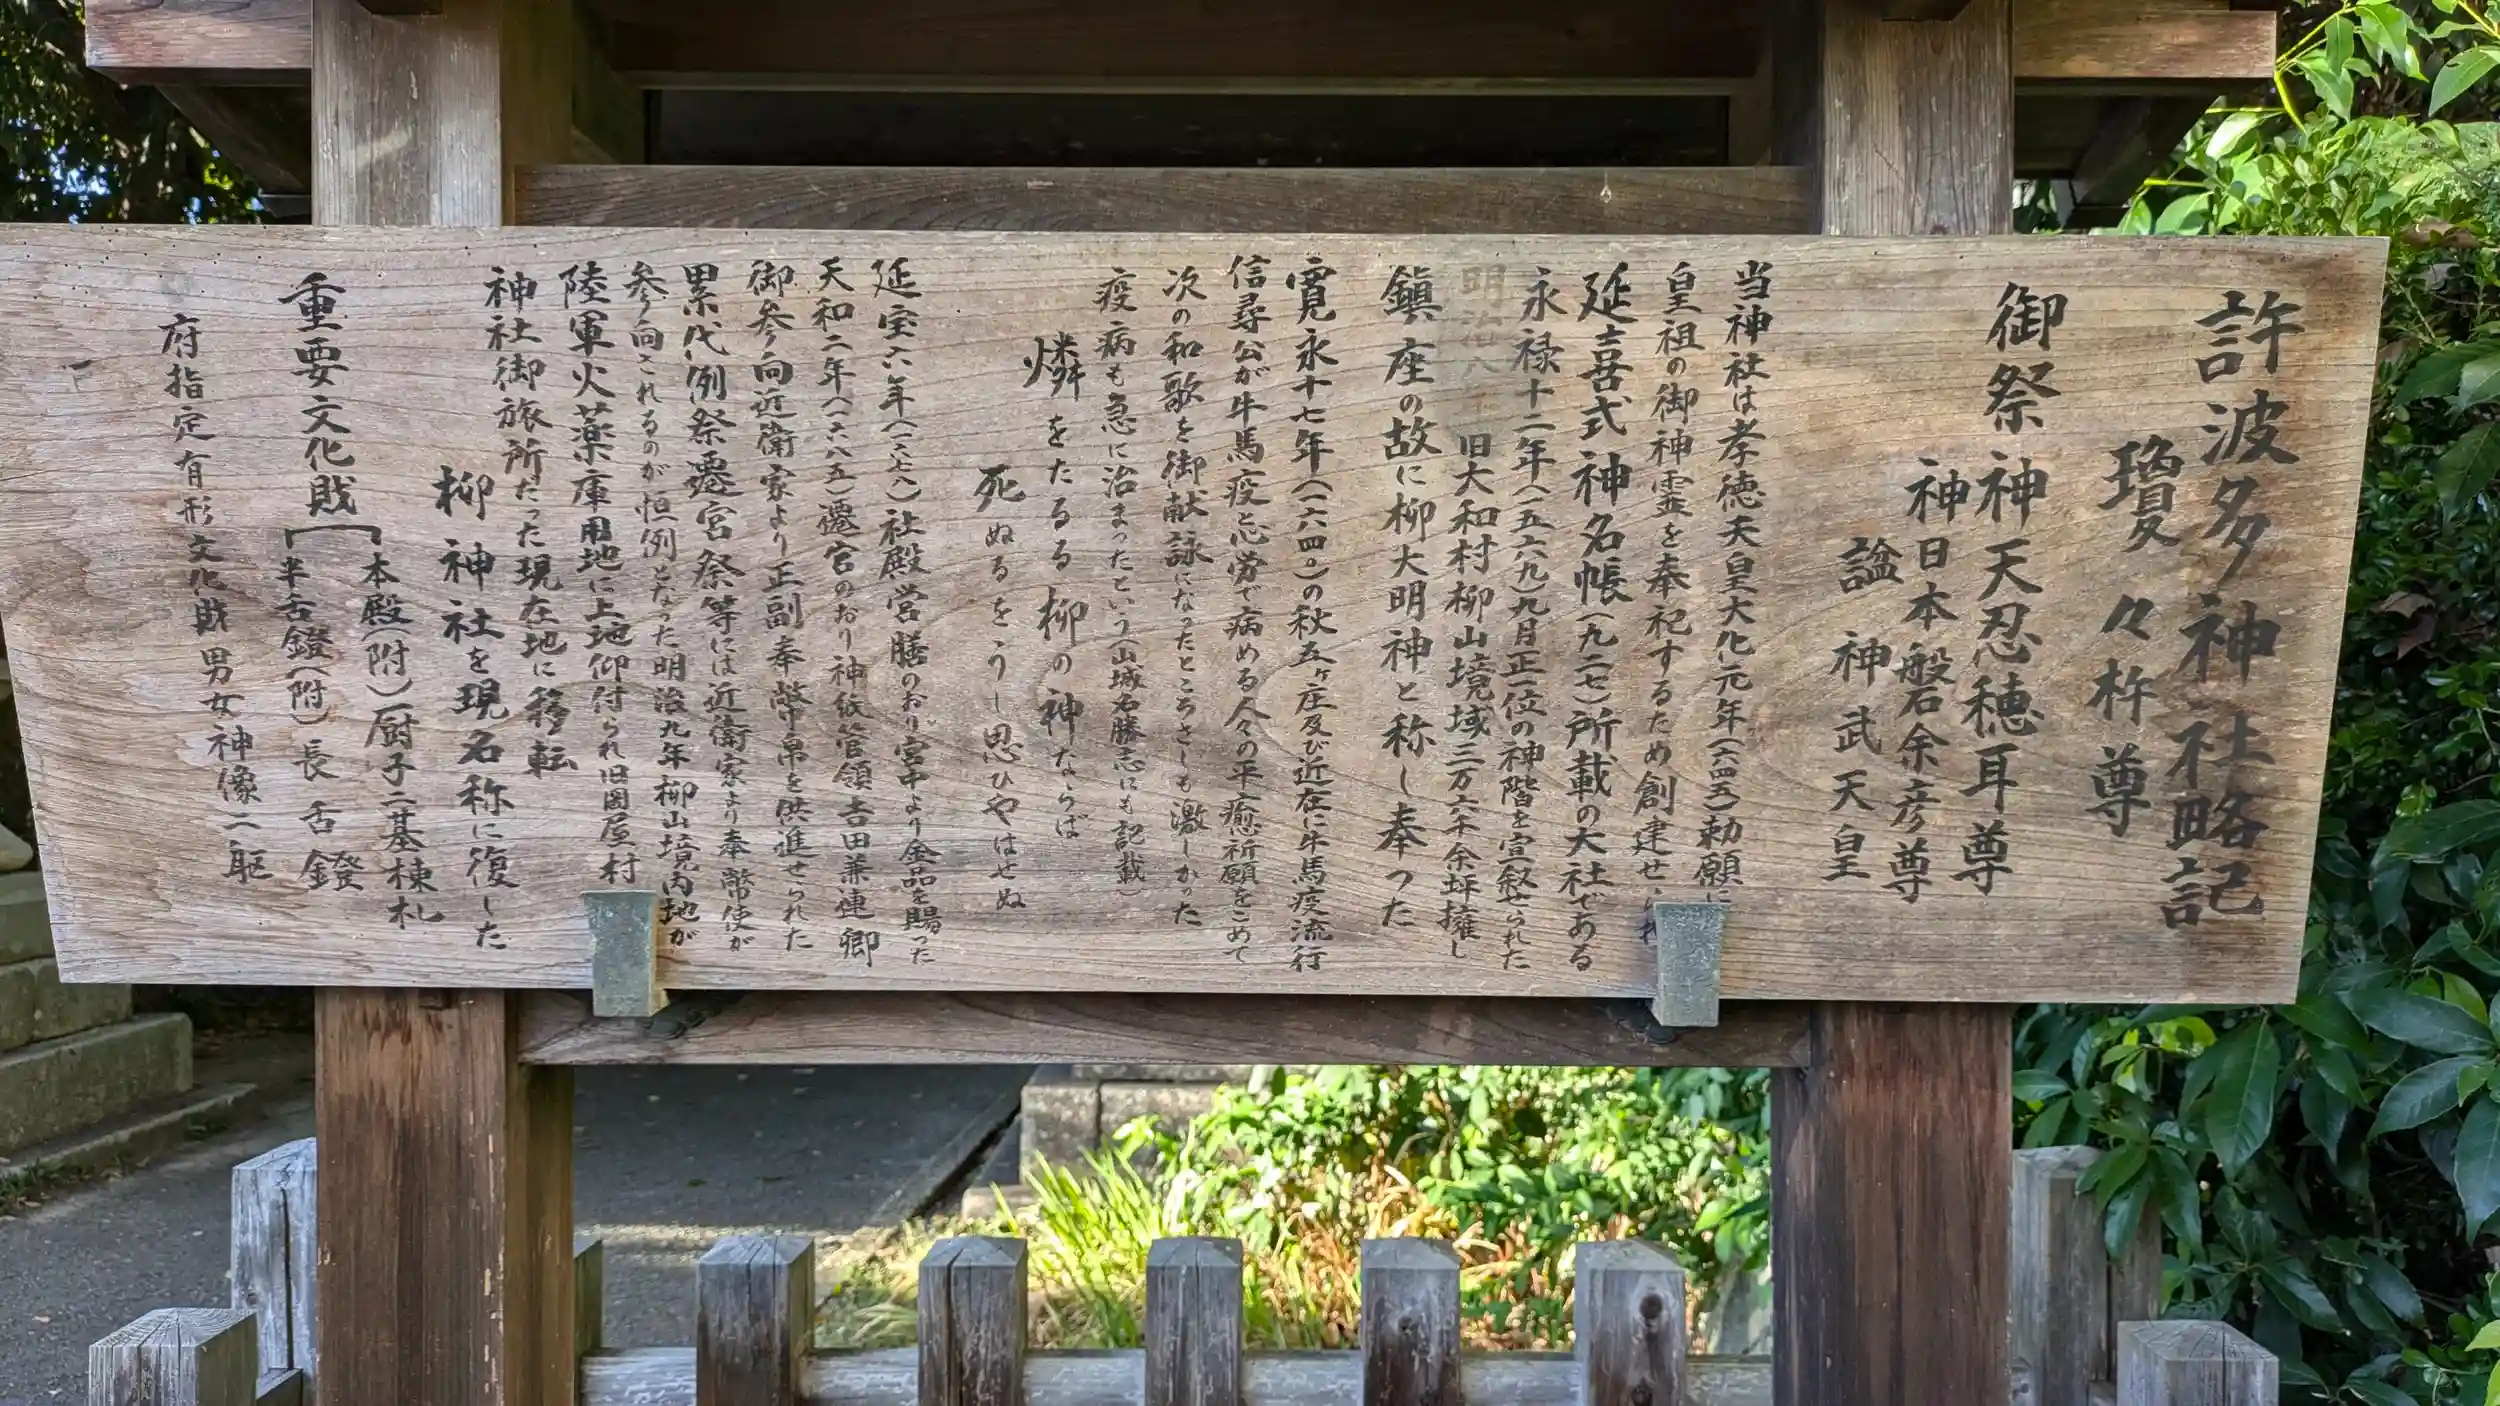 許波多神社略記
瓊々杵尊
御祭神天忍穂耳尊
神日本般石余彦尊
諡 神武天皇
当神社は孝徳天皇大化元年(六四五)勅願に
皇祖の御神霊を奉祀するため創建せ
延喜式神名帳(九二七)所載の大社である
永禄十二年(一五六九)九月正一位の神階を宣叙せられた
明治八年 旧大和村柳山境域三万六千余坪擁し
鎮座の故に柳大明神と称し奉った
寛永十七年(一六四〇)の秋五ヶ庄及び近在に牛馬疫流行
信尋公が牛馬疫と心労で病める人々の平癒祈願をこめて
次の和歌を御献詠になったところさしも激しかった
疫病も急に治まったという(山城名勝志にも記載)
燐をたるる柳の神ならば
死ぬるをうし思ひやはせぬ
延宝六年(一六七八)社殿営膳のおり宮中より金品を賜った
天和二年(一六八五)遷宮のおり神祇管領吉田兼連卿
御参向近衛家より正副奉幣帛を供進せられた
累代例祭遷宮祭等には近衛家より奉幣使が
参向されるのが恒例となった明治九年柳山境内地が
陸軍火薬庫用地に上地仰付られ旧岡屋村
神社御旅所だった現在地に移転
柳神社を現名称に復した
重要文化財
本殿(附)厨子二基棟札
半舌鐙(附)長舌鐙
府指定有形文化財男女神像二躯